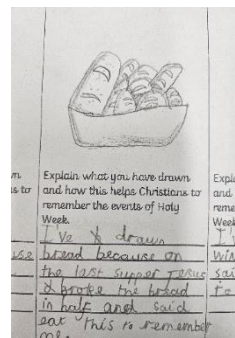 Explain what you have drawn
and how this helps Christians to
remember the events of Holy
Week.
I've drawn
bread because on
the last supper Jesus
& broke the bread
in half and said
eat this to remember
me.